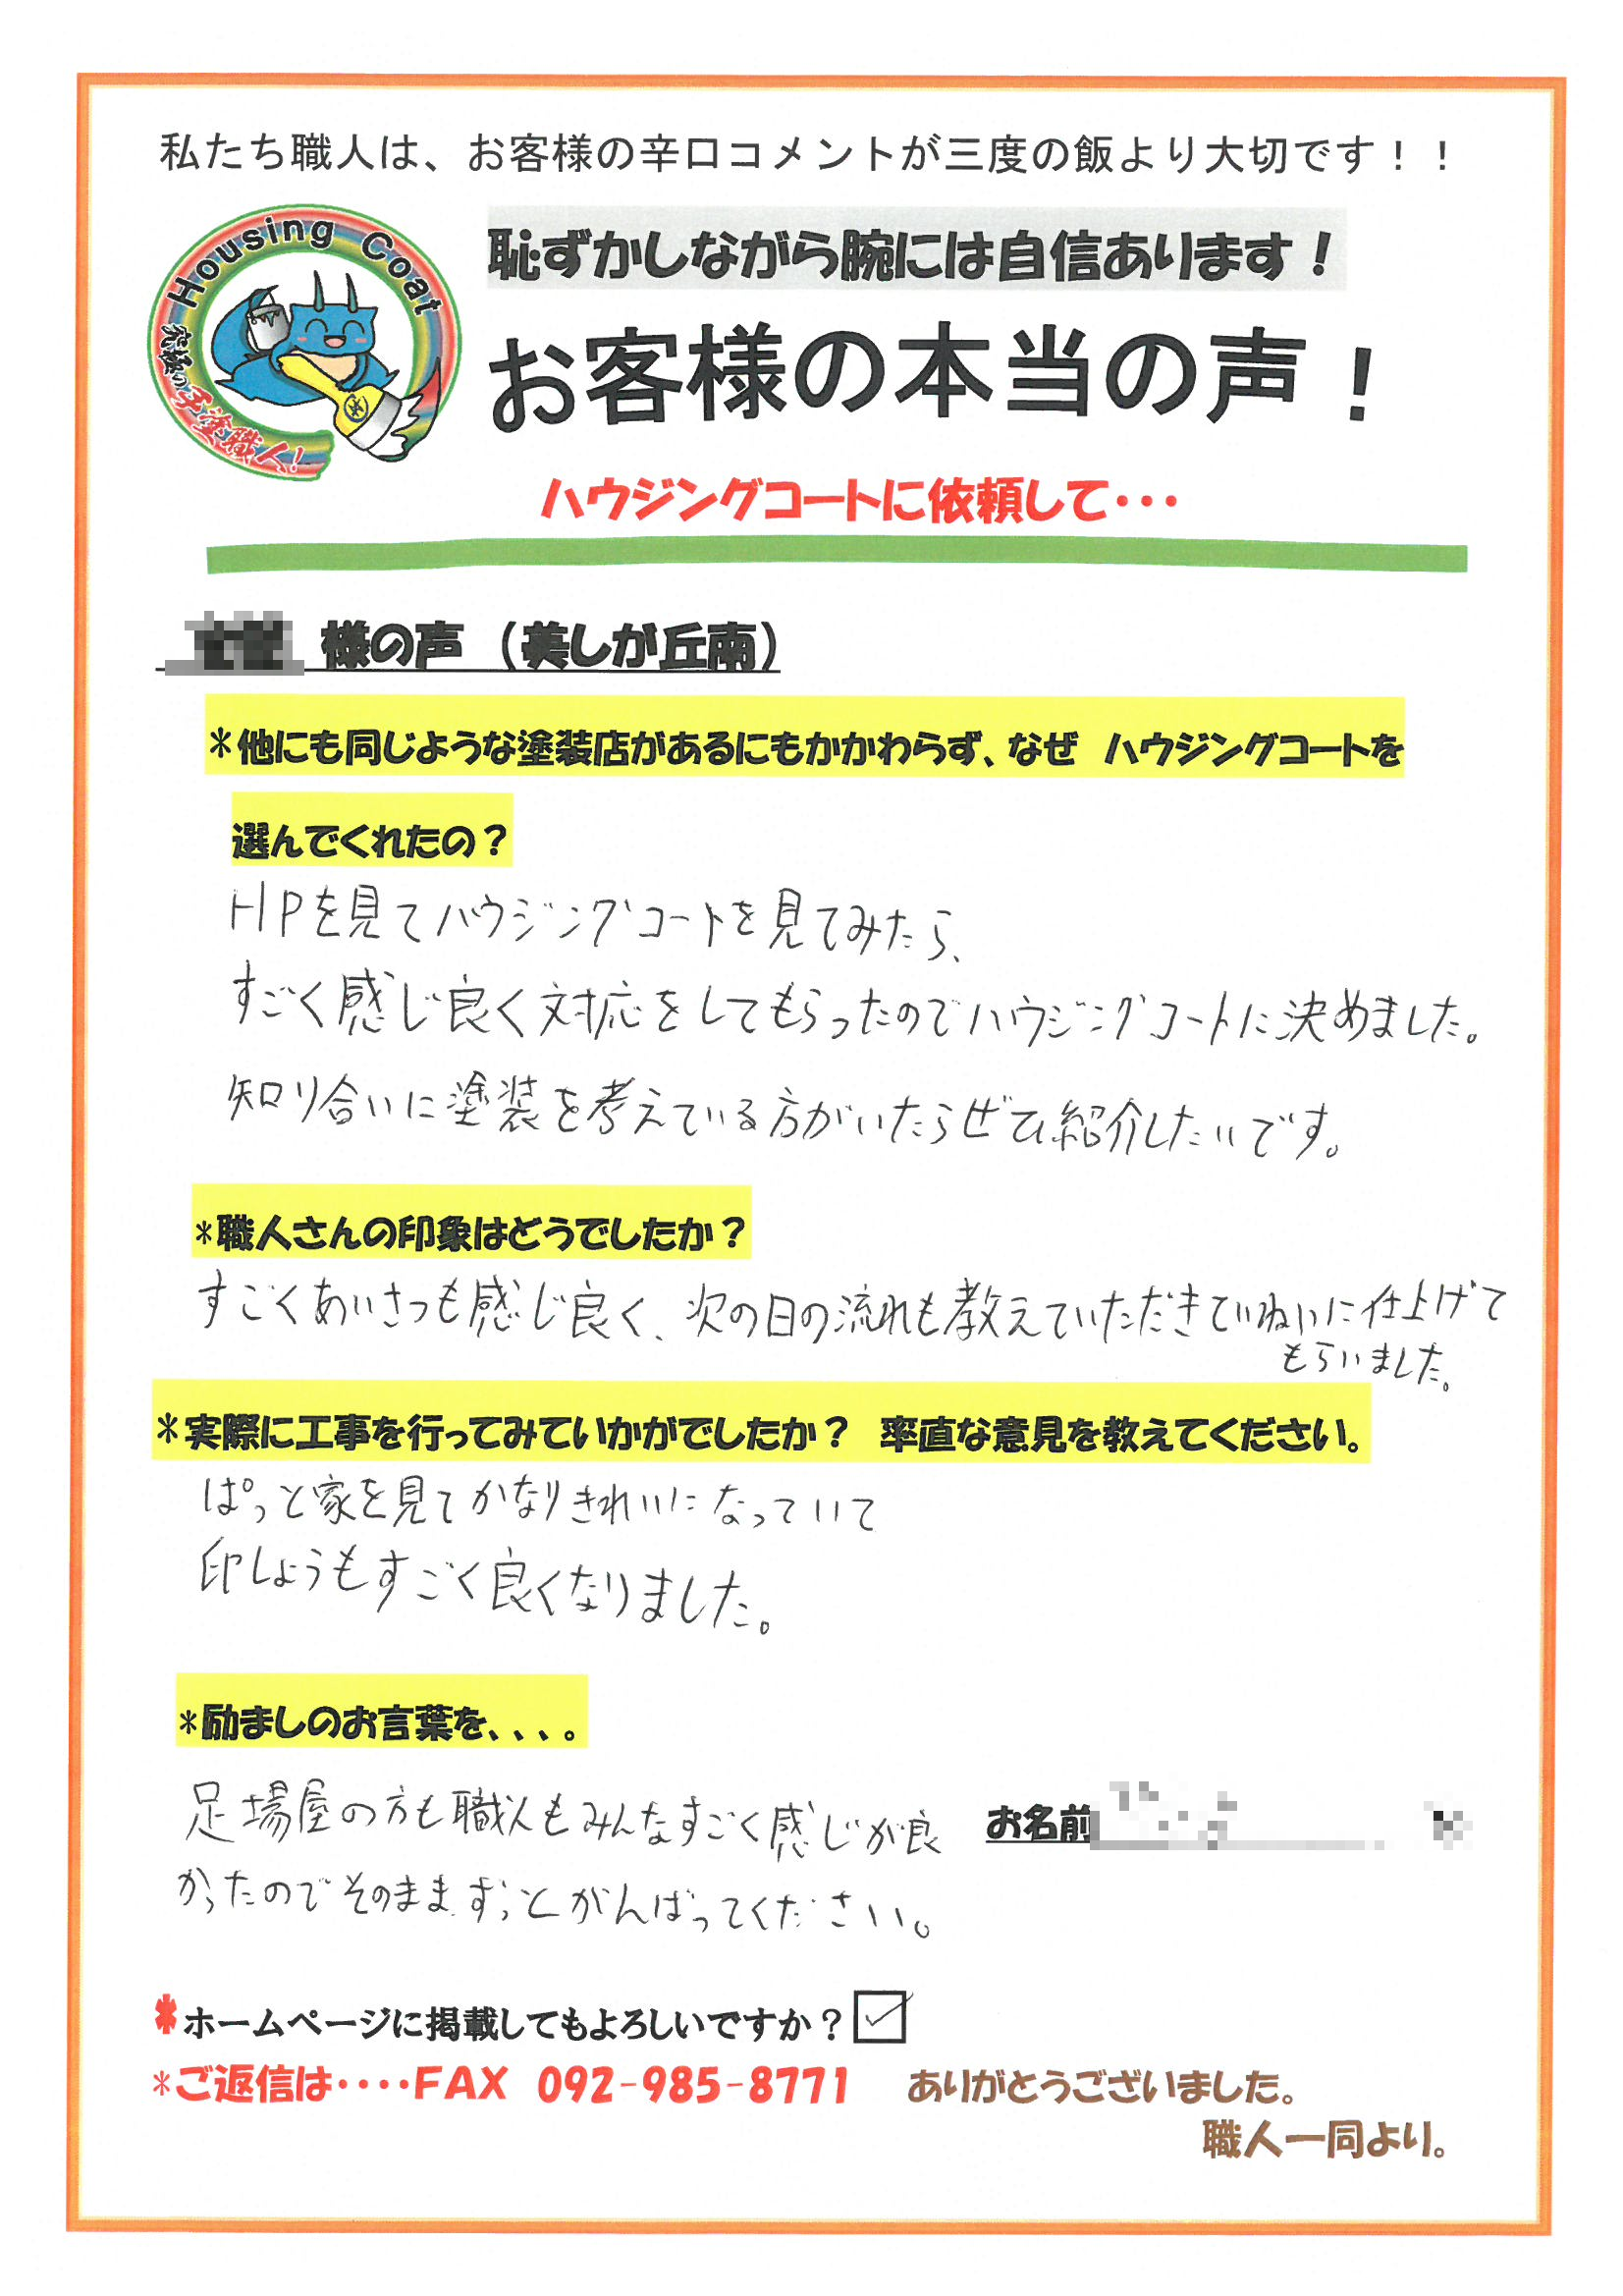 私たち職人は、お客様の辛口コメントが三度の飯より大切です！！
Housing Coat
究極の手塗職人!
恥ずかしながら腕には自信あります！
お客様の本当の声！
ハウジングコートに依頼して・・・
様の声（美しが丘南）
*他にも同じような塗装店があるにもかかわらず、なぜ ハウジングコートを
選んでくれたの？
HPを見てハウジングコートを見てみたら、
すごく感じ良く対応をしてもらったのでハウジングコートに決めました。
知り合いに塗装を考えている方がいたらぜひ紹介したいです。
*職人さんの印象はどうでしたか？
すごくあいさつも感じ良く、次の日の流れも教えていただきていねいに仕上げて
もらいました。
*実際に工事を行ってみていかがでしたか？ 率直な意見を教えてください。
ぱっと家を見てかなりきれいになっていて
印しょうもすごく良くなりました。
*励ましのお言葉を、、、、。
足場屋の方も職人もみんなすごく感じが良
かったのでそのままずっとがんばってください。
お名前
*ホームページに掲載してもよろしいですか？☑
*ご返信は・・・・FAX 092-985-8771 ありがとうございました。
職人一同より。